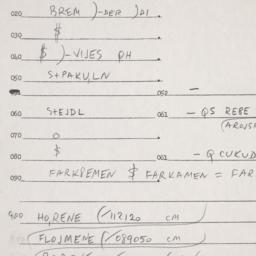 020 BREM )-DER )DI
030 $
040 $ )-VIJES PH
050 S+PAKU,LN
052 -
060 S+EJDL
062 - QS REBE
(AROJS
070 O
080 $
- Q CUKUD
090 FARKPEMEN $ FARKAMEN = FAR
HO,RENE (/112120 CM
FLOJMENE (/089050 CM